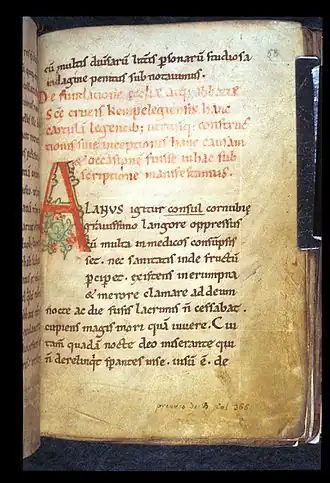 cū multis diuersarū litteris psonarū studiosa
indagine penitus subnotauimus.
De fundatione ecclie atq; abbatiæ
Sce crucis Kemperlegiensis hanc
cartulā legentib; utriusq; constructi
tionis siue inceptionis hanc causam
& occasionē fuisse in hac sub
scriptione manifestamus.
ALANUS igitur consul cornubiæ
grauissimo langore oppressus
cū multa in medicos consūpsis
set. nec sanitatis inde fructū
perciperet. existens in erumpna
& merore clamare ad deum
nocte ac die fusis lacrimis n̄ cessabat.
cupiens magis mori quā uiuere. Cui
tam quadā nocte deo miserante qui
n̄ derelinqt sperantes in se. uisū ē. de
58
365